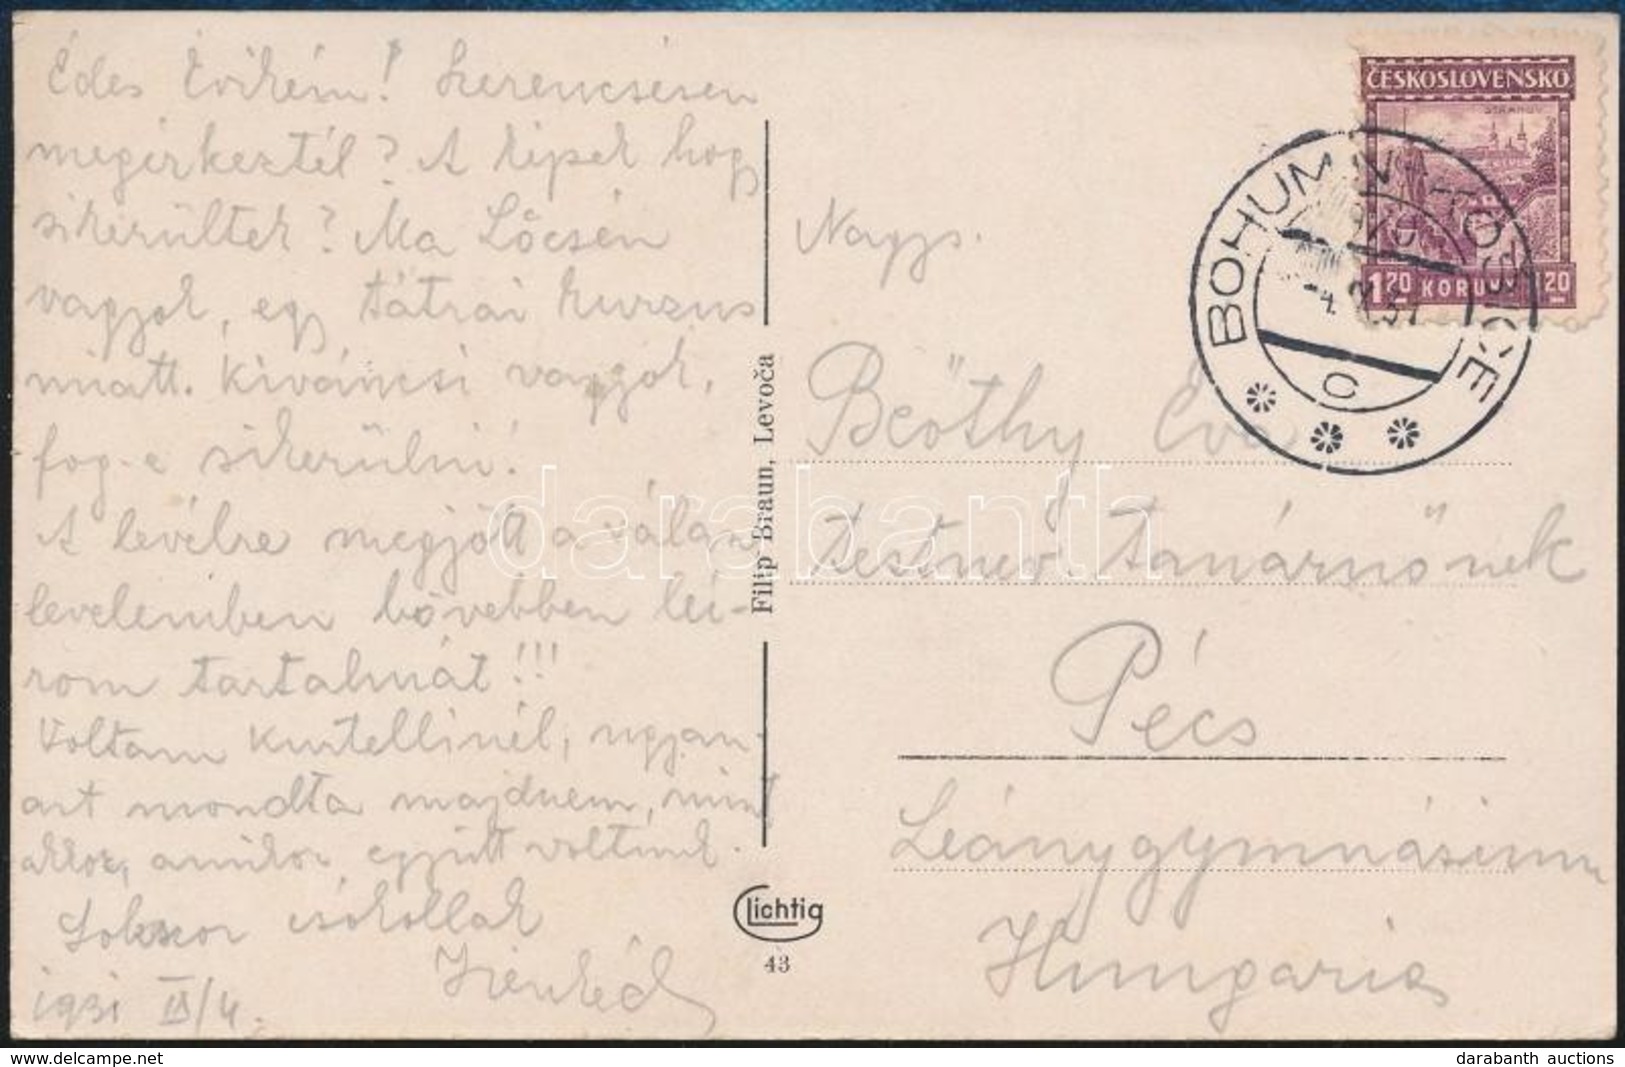 Édes Évikém! Szerencsésen
megérkeztél? A képek hogy
sikerültek? Ma Lőcsén
vagyok, egy tátrai kurzus
miatt. Kíváncsi vagyok,
fog-e sikerülni!
A levélre megjött a válasz
levelemben bővebben leí-
rom tartalmát!!!
Voltam Kurtellinél, ugyan-
azt mondta majdnem, mint
akkor, amikor együtt voltunk.
Sokszor csókollak
1931 IX/4.
Filip Braun, Levoča
Lichtig
43
ČESKOSLOVENSKO
STRAHOV
1 20 KORUNY 1 20
BOHUMÍN - KOŠICE
c
Nagys.
Beöthy Éva
testnev. tanárnőnek
Pécs
Leánygymnásium
Hungaria
darabanth
darabanth auctions
https://www.delcampe.net